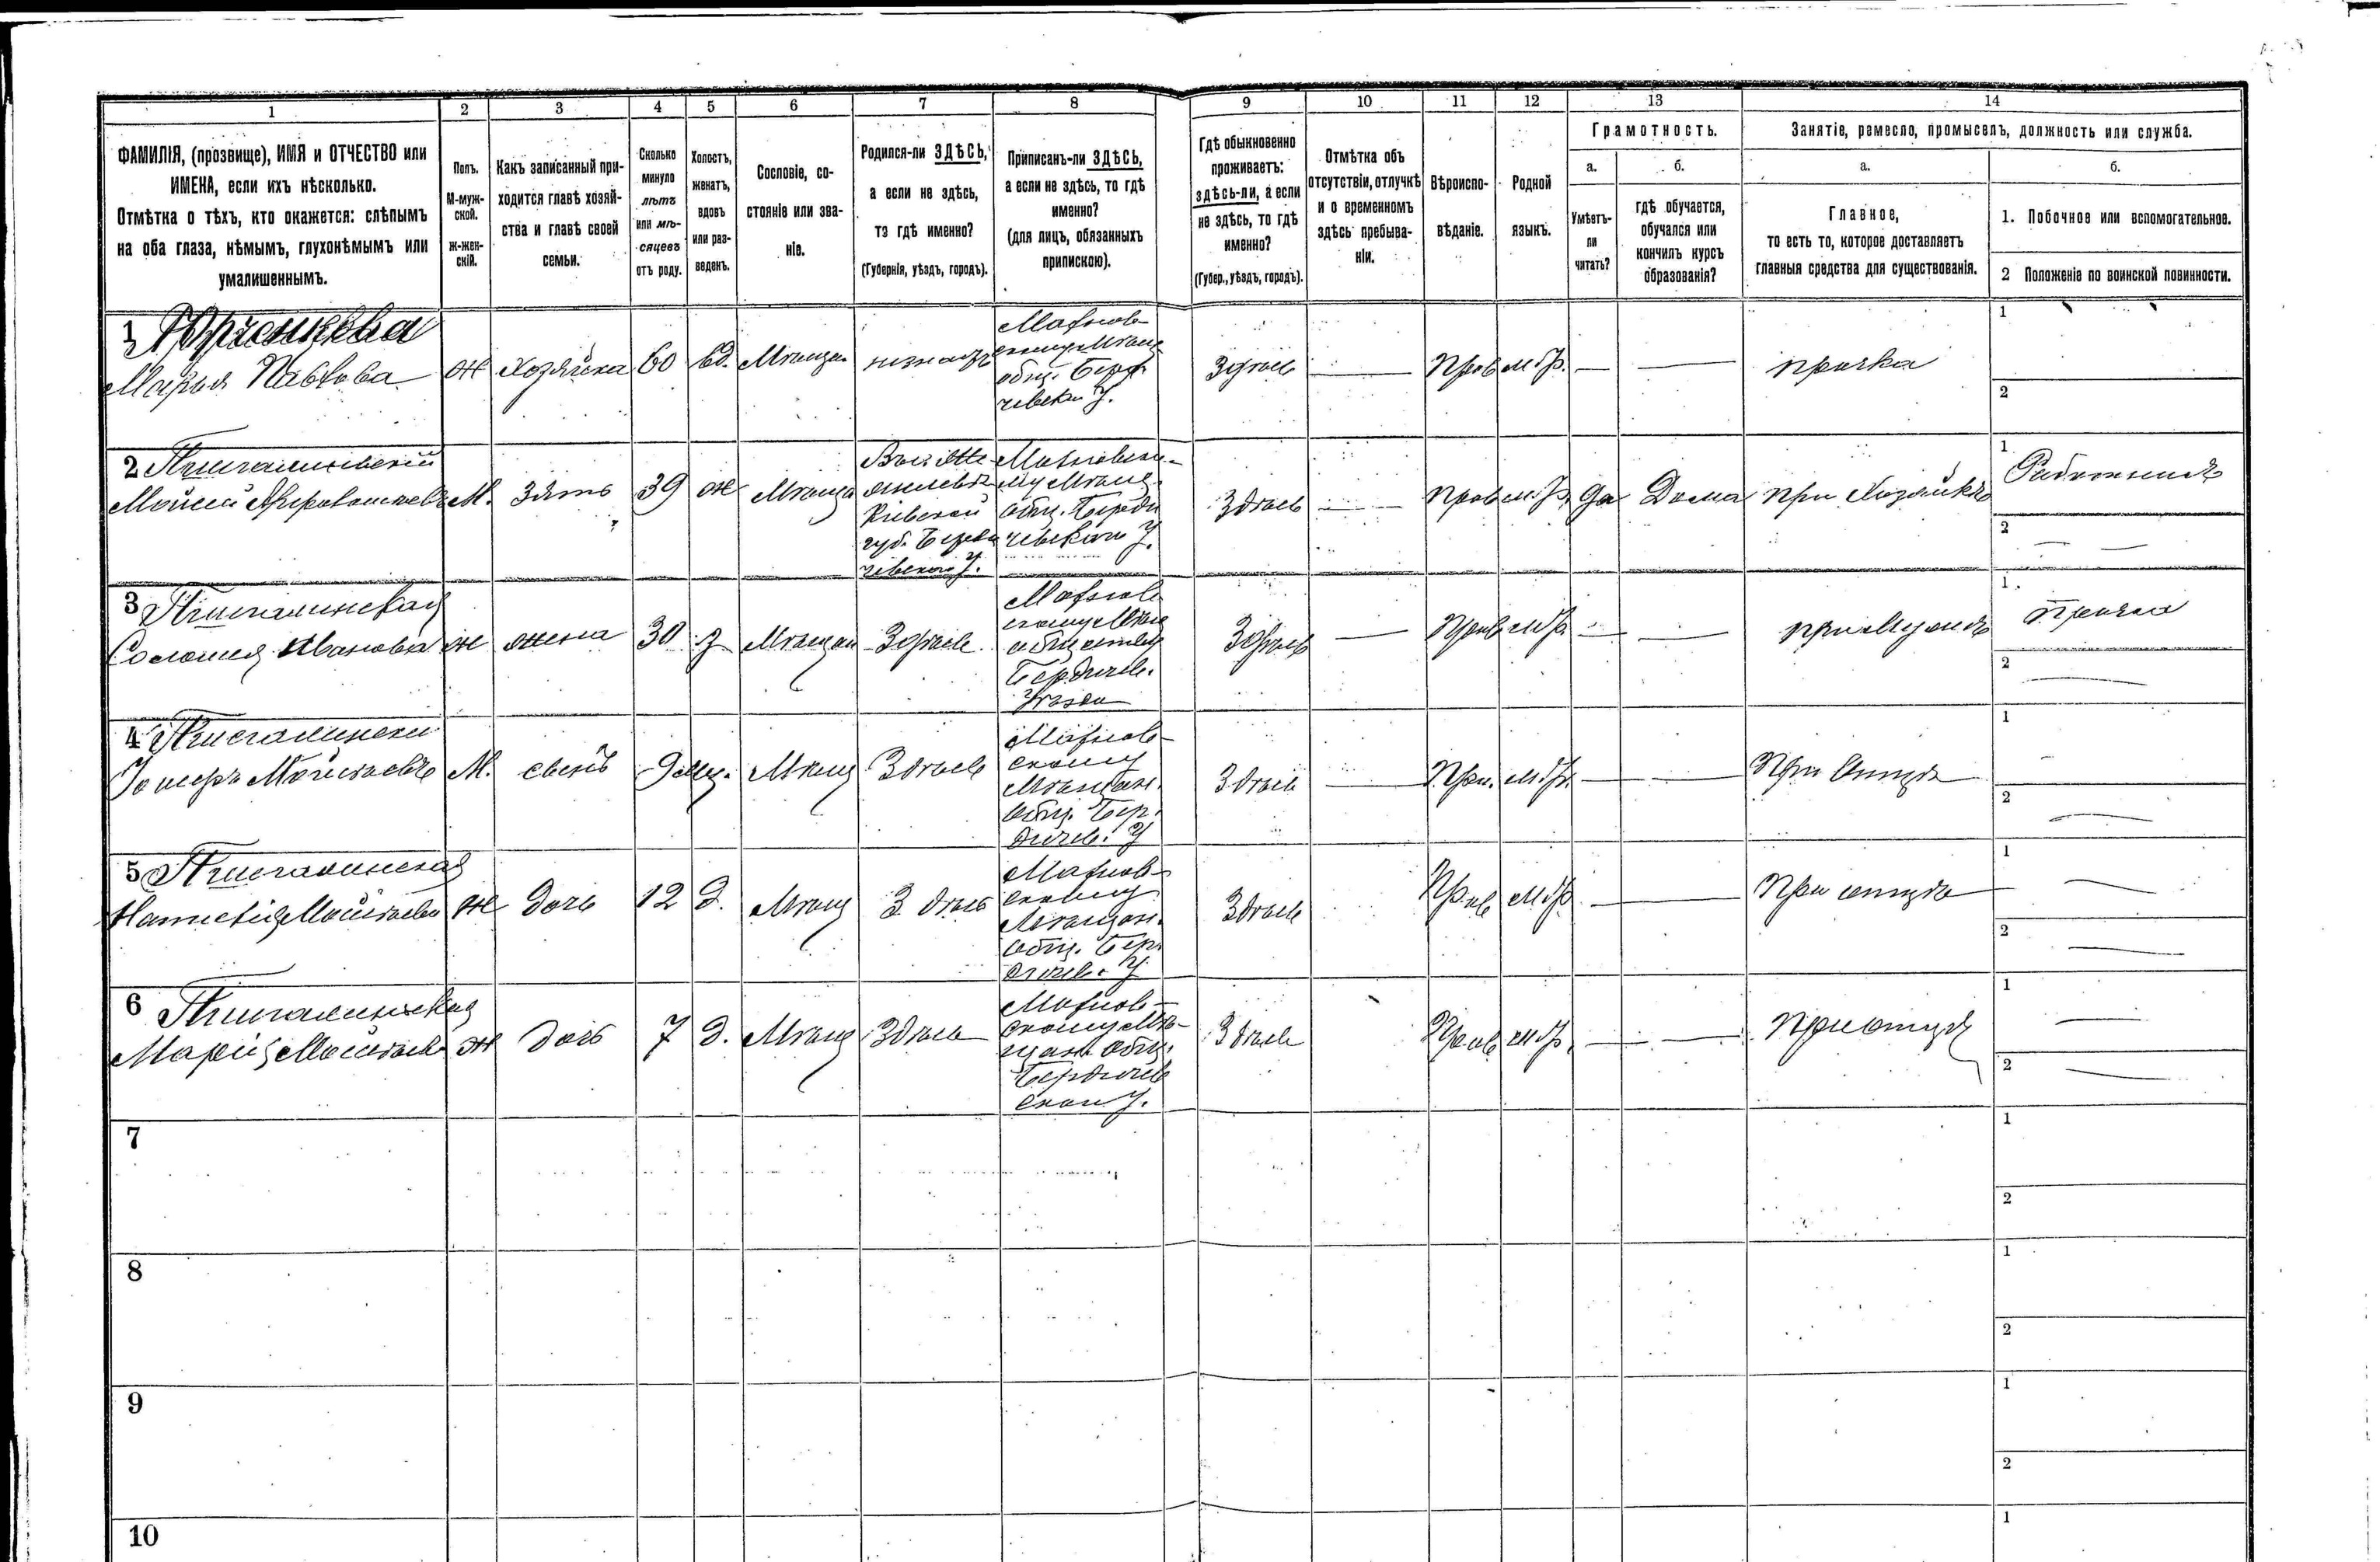 1
2
3
4
5
6
7
8
9
10
11
12
13
14
ФАМИЛІЯ, (прозвище), ИМЯ и ОТЧЕСТВО или
ИМЕНА, если ихъ нѣсколько.
Отмѣтка о тѣхъ, кто окажется: слѣпымъ
на оба глаза, нѣмымъ, глухонѣмымъ или
умалишеннымъ.
Полъ.
М-муж-
ской.
Ж-жен-
скій.
Какъ записанный при-
ходится главѣ хозяй-
ства и главѣ своей
семьи.
Сколько
минуло
лѣтъ
или мѣ-
сяцевъ
отъ роду.
Холостъ,
женатъ,
вдовъ
или раз-
веденъ.
Сословіе, со-
стояніе или зва-
ніе.
Родился-ли ЗДѢСЬ,
а если не здѣсь,
то гдѣ именно?
(Губернія, уѣздъ, городъ).
Приписанъ-ли ЗДѢСЬ,
а если не здѣсь, то гдѣ
именно?
(для лицъ, обязанныхъ
припискою).
Гдѣ обыкновенно
проживаетъ:
здѣсь-ли, а если
не здѣсь, то гдѣ
именно?
(Губер., уѣздъ, городъ).
Отмѣтка объ
отсутствіи, отлучкѣ
и о временномъ
здѣсь пребыва-
ніи.
Вѣроиспо-
вѣданіе.
Родной
языкъ.
Грамотность.
а.
Умѣетъ-
ли
читать?
б.
гдѣ обучается,
обучался или
кончилъ курсъ
образованія?
Занятіе, ремесло, промыселъ, должность или служба.
а.
Главное,
то есть то, которое доставляетъ
главныя средства для существованія.
б.
1. Побочное или вспомогательное.
2 Положеніе по воинской повинности.
1
Марья Павлова
ж хозяйка 60 вд. Мѣщан
Махнов-
скому Мѣщ
общ. Берд
чевскаго У.
Здѣсь
Прав м.р. — — прачка
1
2
2
Мойсей
М. зять 39 ж Мѣщан
Кіевской
губ. Берди
чевскаго У.
Махновско-
му Мѣщ.
общ. Берди
чевскаго У.
Здѣсь — Прав м.р. Да Дома при Хозяйкѣ
1 Работникъ
2
3
Соломея Иванова ж жена 30 З Мѣщан Здѣсь
Махнов
скому Мѣщ
обществу
Бердичев.
Уѣзда
Здѣсь — Прав м.р. — — при Мужѣ
1 Прачка
2
4
Мойсѣевъ М.
9 мц. Мѣщ Здѣсь
Махнов-
скому
Мѣщан.
общ. Бер-
дичев. У
Здѣсь — Прав. м.р. — — При Отцѣ
1
2
5
Мойсѣева ж Дочь 12 Д. Мѣщ Здѣсь
Махнов-
скому
Мѣщан.
общ. Бер
дичев. У
Здѣсь Прав м.р. — При отцѣ
1
2
6
Марія Мойсѣева ж Дочь 7 Д. Мѣщ Здѣсь
Махнов-
скому Мѣ-
щан. общ.
Бердичев
скаго У.
Здѣсь Прав м.р. — — При отцѣ
1
2
7
1
2
8
1
2
9
1
2
10
1